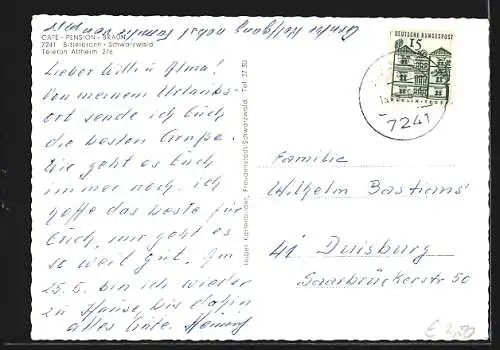 CAFE - PENSION - BRAUN
7241 Bittelbronn - Schwarzwald
Telefon Altheim 276
Lieber Willi u Alma!
Von meinem Urlaubs-
ort sende ich Euch
die besten Grüße.
Wie geht es Euch
immer noch. ich
hoffe das beste für
Euch, mir geht es
so weit gut. Am
25.5. bin ich wieder
zu Hause, bis dahin
alles Gute. Henning
Hesper Cartenbilder, Freudenstadt-Schwarzwald · Tel. 27 30
DEUTSCHE BUNDESPOST
15
7241
Familie
Wilhelm Bastians
41 Duisburg
Saarbrückerstr 50
€ 2,80